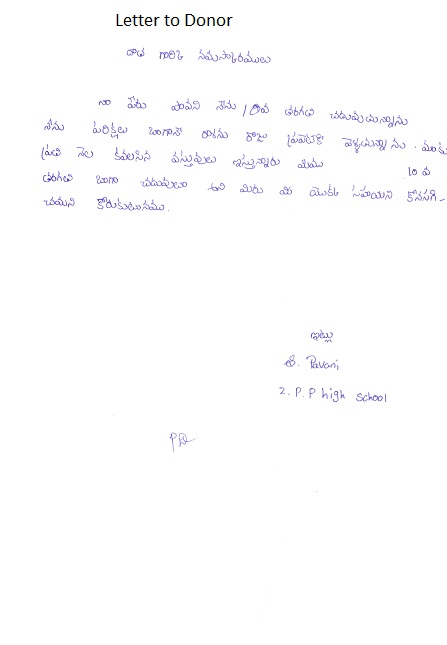 Letter to Donor
దాత గారికి నమస్కారములు
నా పేరు పావని నేను 10వ తరగతి చదువుచున్నాను
నేను పరిక్షలు బాగానే రాశను రోజు ప్రవేటుకి వెళ్ళచున్నాను. మాకు
ప్రతి నెల కవలసిన వస్తువులు ఇస్తున్నారు మేము 10 వ
తరగతి బాగా చదువులు అని మిరు మి యొక్క సహయని కోనసగి-
చమని కోరుకుటునము.
ఇట్లు
Pavani
Z. P. P high school